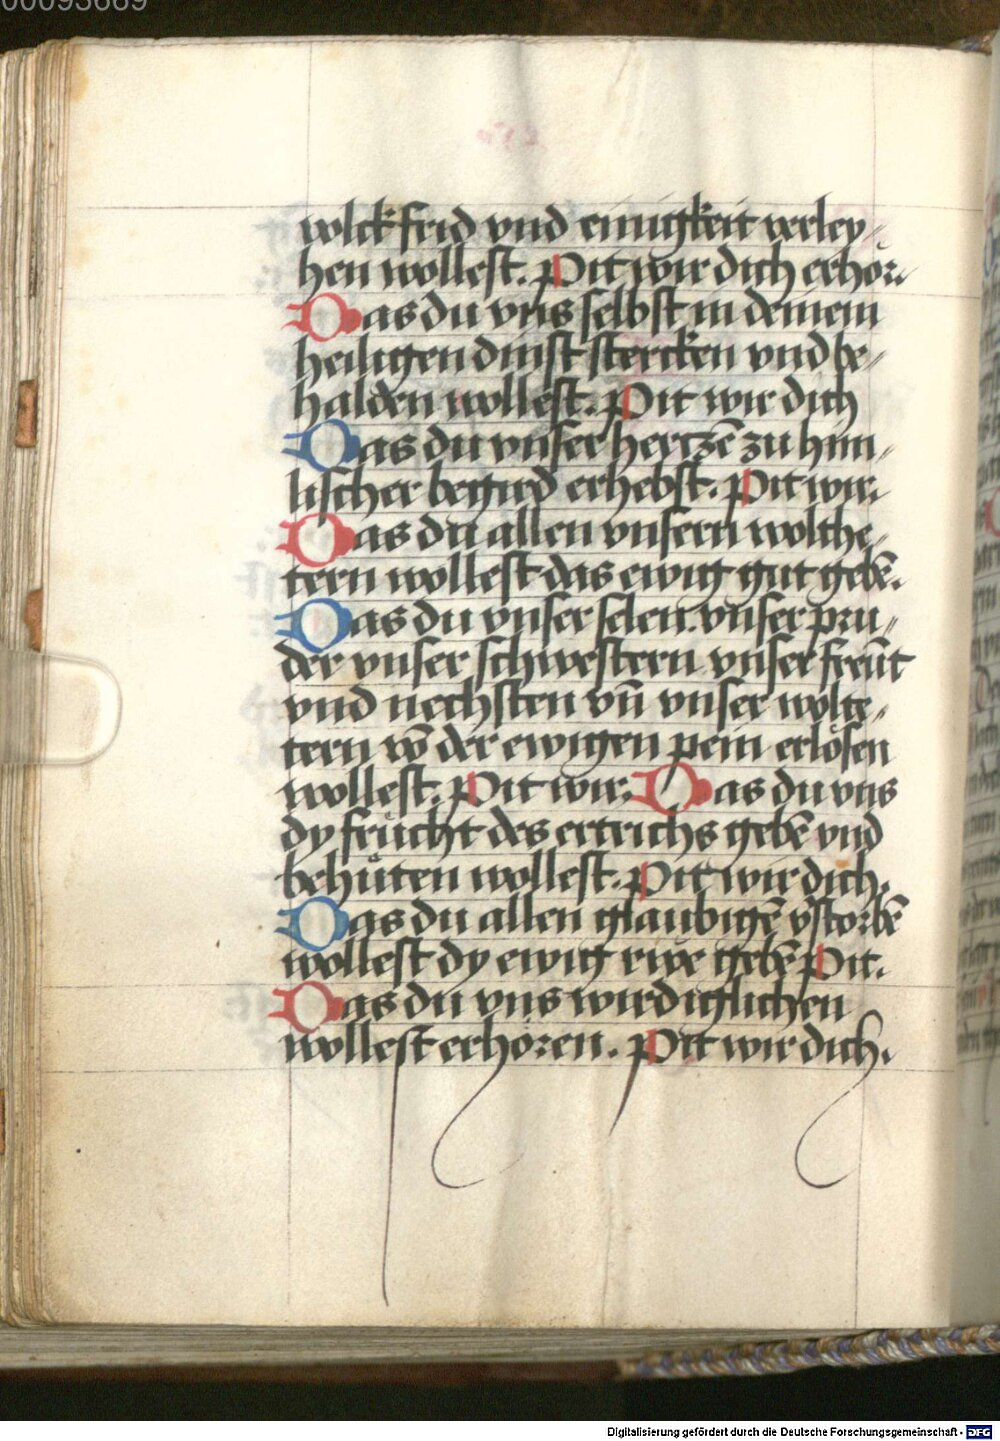 00093669
volck frid vnd einigkeit verley⸗
hen wollest. Pit wir dich erhör.
Das du vns selbst in deinem
heiligen dinst stercken vnd be⸗
halden wollest. Pit wir dich
Das du vnser hertzē zu him⸗
lischer begird erhebst. Pit wir.
Das du allen vnsern wolthe⸗
tern wollest das ewig gut gebē.
Das du vnser selen. vnser pru⸗
der vnser schwestern vnser freūt
vnd nechsten vn̄ vnser wolte⸗
tern vō der ewigen pein erlösen
wollest. Pit wir. Das du vns
dy frücht des ertrichs gebē vnd
behüten wollest. Pit wir dich.
Das du allen glaubigē v̄storbē
wollest dy ewig rwe gebē Pit.
Das du vns wirdiglichen
wollest erhören. Pit wir dich.
Digitalisierung gefördert durch die Deutsche Forschungsgemeinschaft - DFG